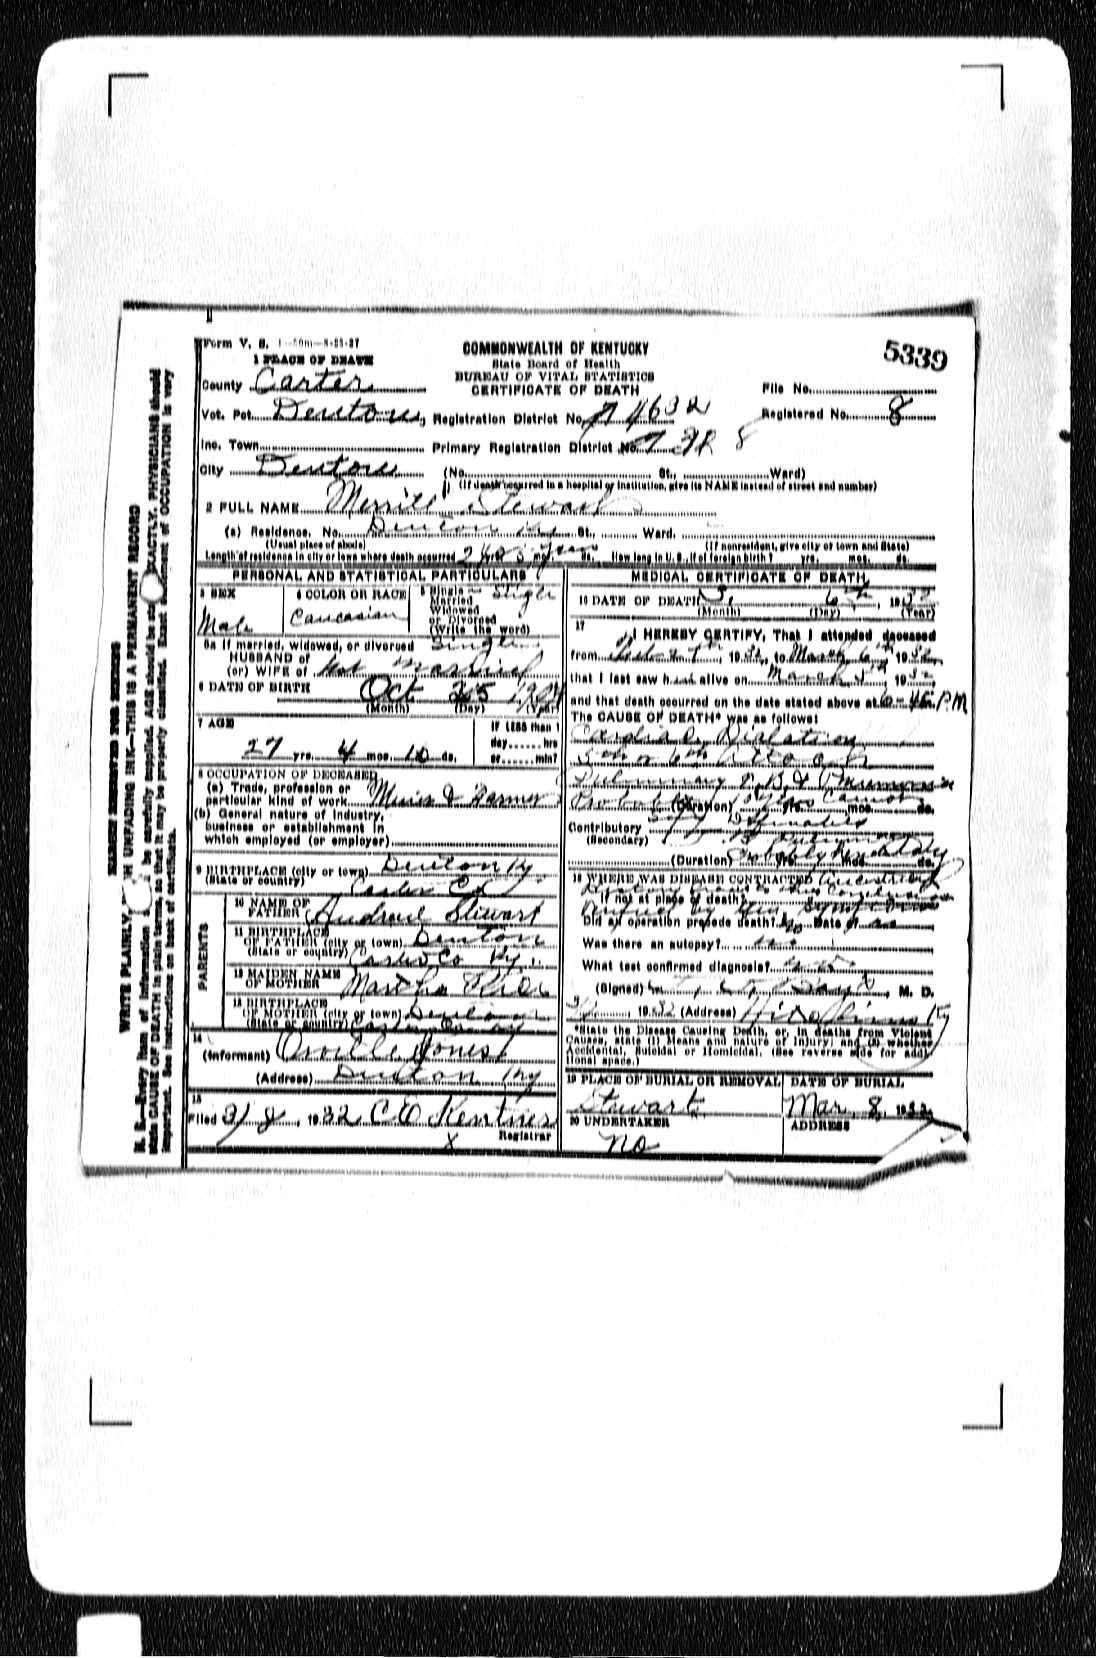 Form V. S. 1-50m-8-25-27
5339
COMMONWEALTH OF KENTUCKY
State Board of Health
BUREAU OF VITAL STATISTICS
CERTIFICATE OF DEATH
1 PLACE OF DEATH
County Carter
File No.
Vot. Pct. Denton, Registration District No. 4632
Registered No. 8
Inc. Town Primary Registration District No.
City Denton (No. St., Ward)
(If death occurred in a hospital or institution, give its NAME instead of street and number)
2 FULL NAME Merrill Stewart
(a) Residence. No. Denton Ky St., Ward.
(Usual place of abode) (If nonresident, give city or town and State)
Length of residence in city or town where death occurred yrs. mos. ds. How long in U. S., if of foreign birth? yrs. mos. ds.
PERSONAL AND STATISTICAL PARTICULARS
3 SEX
Male
4 COLOR OR RACE
Caucasian
5 Single
Married
Widowed
or Divorced
(Write the word)
Single
5a If married, widowed, or divorced Single
HUSBAND of
(or) WIFE of Not Married
6 DATE OF BIRTH Oct 25 1904
(Month) (Day) (Year)
7 AGE
27 yrs. 4 mos. 10 ds.
If LESS than 1
day hrs
or min?
8 OCCUPATION OF DECEASED
(a) Trade, profession or
particular kind of work Miner & Farmer
(b) General nature of industry,
business or establishment in
which employed (or employer)
9 BIRTHPLACE (city or town) Denton Ky
(State or country) Carter Co
PARENTS
10 NAME OF
FATHER Andrew Stewart
11 BIRTHPLACE
OF FATHER (city or town) Denton
(State or country) Carter Co Ky.
12 MAIDEN NAME
OF MOTHER Martha
13 BIRTHPLACE
OF MOTHER (city or town) Denton
(State or country) Carter County
14
(Informant) Orville Jones
(Address) Denton Ky
15
Filed 3/8, 1932 C O Kentner
Registrar
X
MEDICAL CERTIFICATE OF DEATH
16 DATE OF DEATH 3, 6th, 1932
(Month) (Day) (Year)
17
I HEREBY CERTIFY, That I attended deceased
from Feb 27th, 1932, to March 6th 1932,
that I last saw him alive on March 5th, 1932,
and that death occurred on the date stated above at 6-45 P.M
The CAUSE OF DEATH* was as follows:
Cardiac Dialation
5th or 6th Attack
Pulmonary T.B. & Pneumonia
Probably (Duration) yrs. mos. ds.
Contributory
(Secondary)
(Duration) Probably yrs. mos. ds.
18 WHERE WAS DISEASE CONTRACTED
If not at place of death?
Did an operation precede death? No Date of no
Was there an autopsy? no
What test confirmed diagnosis?
(Signed) M. D.
, 1932 (Address) Hitchins Ky
*State the Disease Causing Death, or, in deaths from Violent
Causes, state (1) Means and nature of Injury; and (2) whether
Accidental, Suicidal or Homicidal. (See reverse side for addi
tional space.)
19 PLACE OF BURIAL OR REMOVAL
Stewart
DATE OF BURIAL
Mar 8, 1932
20 UNDERTAKER
No
ADDRESS
MARGIN RESERVED FOR BINDING
WRITE PLAINLY UNFADING INK—THIS IS A PERMANENT RECORD
N. B.—Every item of information be carefully supplied. AGE should be EXACTLY. PHYSICIANS should
state CAUSE OF DEATH in plain terms, so that it may be properly classified. Exact of OCCUPATION is very
important. See instructions on back of certificate.